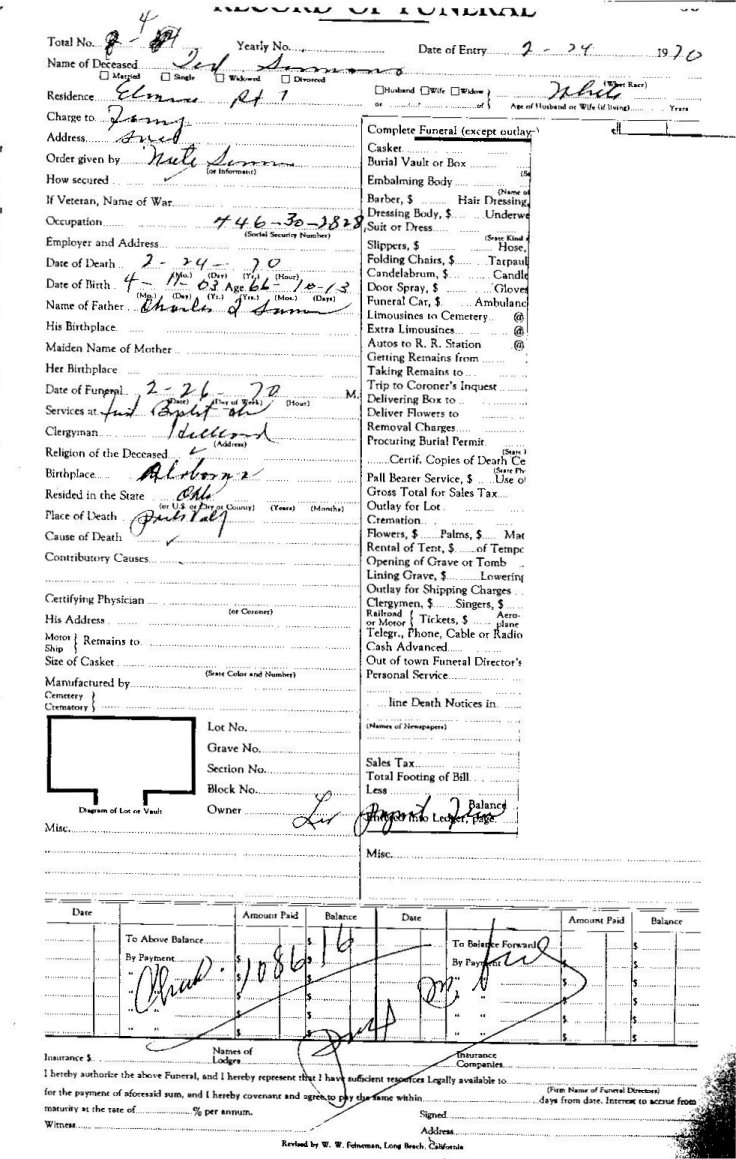 RECORD OF FUNERAL
Total No. Yearly No. Date of Entry 2 - 24 1970
Name of Deceased Ted Simmons
Married Single Widowed Divorced
Husband Wife Widow White (What Race)
Residence Elmore Rt 1 or of Age of Husband or Wife (if living) Years
Charge to Family
Address Same
Order given by Simmons
(or Informant)
How secured
If Veteran, Name of War
Occupation 446-30-2828
(Social Security Number)
Employer and Address
Date of Death 2 - 24 - 70
(Mo.) (Day) (Yr.) (Hour)
Date of Birth 4 - 11 - 03 Age 66 - 10 - 13
(Mo.) (Day) (Yr.) (Yrs.) (Mos.) (Days)
Name of Father Charles Simmons
His Birthplace
Maiden Name of Mother
Her Birthplace
Date of Funeral 2 - 26 - 70 M.
(Date) (Day of Week) (Hour)
Services at First Baptist Ch
Clergyman
(Address)
Religion of the Deceased
Birthplace Alabama
Resided in the State Okla
(or U.S. or City or County) (Years) (Months)
Place of Death Pauls Valley
Cause of Death
Contributory Causes
Certifying Physician
(or Coroner)
His Address
Motor Ship } Remains to
Size of Casket
(State Color and Number)
Manufactured by
Cemetery
Crematory
Lot No.
Grave No.
Section No.
Block No.
Owner
Diagram of Lot or Vault
Misc.
Complete Funeral (except outlay
Casket
Burial Vault or Box
Embalming Body
(Name of
Barber, $ Hair Dressing,
Dressing Body, $ Underwe
Suit or Dress
(State Kind
Slippers, $ Hose,
Folding Chairs, $ Tarpaul
Candelabrum, $ Candle
Door Spray, $ Glove
Funeral Car, $ Ambulanc
Limousines to Cemetery @
Extra Limousines @
Autos to R. R. Station @
Getting Remains from
Taking Remains to
Trip to Coroner's Inquest
Delivering Box to
Deliver Flowers to
Removal Charges
Procuring Burial Permit
(State
Certif. Copies of Death Ce
(State Ph
Pall Bearer Service, $ Use o
Gross Total for Sales Tax
Outlay for Lot
Cremation
Flowers, $ Palms, $ Mat
Rental of Tent, $ of Tempo
Opening of Grave or Tomb
Lining Grave, $ Lowering
Outlay for Shipping Charges
Clergymen, $ Singers, $
Railroad or Motor } Tickets, $ Aero-plane
Telegr., Phone, Cable or Radio
Cash Advanced
Out of town Funeral Director's
Personal Service
line Death Notices in
(Names of Newspapers)
Sales Tax
Total Footing of Bill
Less
Balance
Entered into Ledger, page
Misc.
Date Amount Paid Balance Date Amount Paid Balance
To Above Balance $ $ To Balance Forward $
By Payment 1086 16 By Payment
Check
Paid in full
Insurance $ Names of Lodges Insurance Companies
I hereby authorize the above Funeral, and I hereby represent that I have sufficient resources Legally available to
(Firm Name of Funeral Directors)
for the payment of aforesaid sum, and I hereby covenant and agree to pay the same within days from date. Interest to accrue from
maturity at the rate of % per annum. Signed
Witness Address
Revised by W. W. Feineman, Long Beach, California